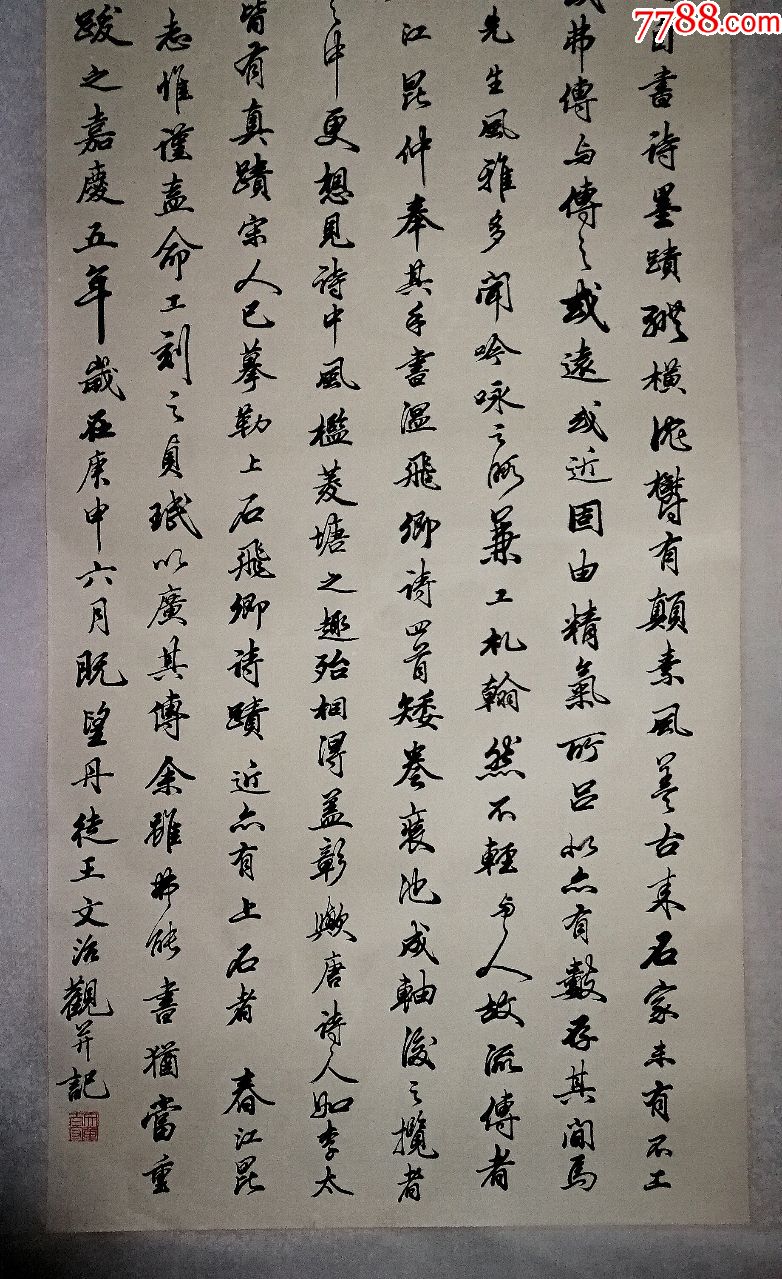 7788.com
自書詩墨蹟縱橫沈鬱有顛素風蓋古來名家未有不工
或弗傳与傳之或遠或近固由精氣所呂然亦有數存其間焉
先生風雅多聞吟咏之號兼工札翰然不輕与人故流傳者
江昆仲奉其手書溫飛卿詩四首矮卷裝池成軸後之攬者
之中更想見詩中風檻菱塘之趣殆相得益彰歟唐詩人如李太
皆有真蹟宋人已摹勒上石飛卿詩蹟近亦有上石者 春江昆
志惟謹盍命工刻之貞珉以廣其傳余雖弗能書猶當重
跋之嘉慶五年歲在庚申六月既望丹徒王文治觀并記